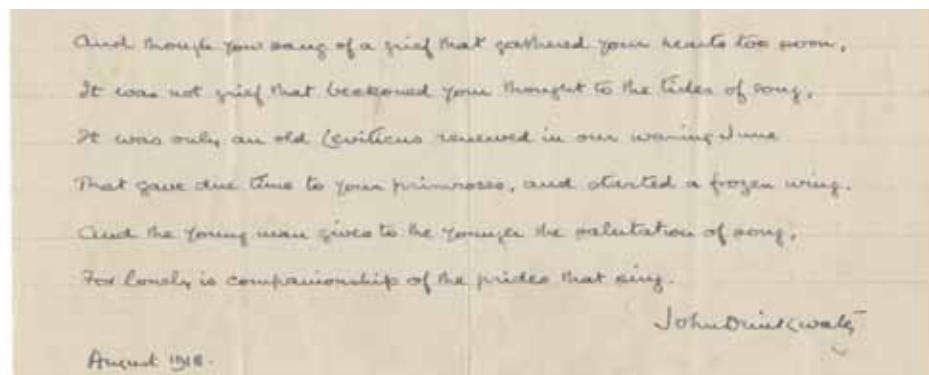 And though you sang of a grief that gathered your hearts too soon,
It was not grief that beckoned your thought to the tides of song,
It was only an old Leviticus renewed in our waning June
That gave due time to your primroses, and started a frozen wing.
And the young man gives to the younger the salutation of song,
For lonely is companionship of the prides that sing.
John Drinkwater
August 1918.